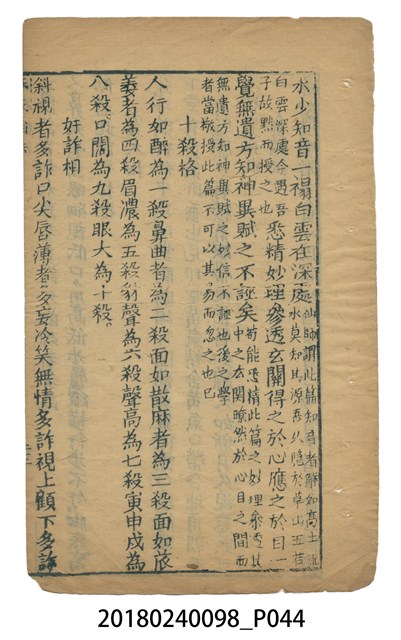 水少知音一榻白雲在深處仙師謂此篇知音者鮮如高士流
水莫知其源吾以隱於草山五苦
白雲深處今遇吾
子故默而授之也悉精妙理參透玄關得之於心應之於目一
覺無遺方知神異賦之不誣矣苟能悉精此篇之妙理參透其
中之玄關瞭然於心目之間而
無遺方知神異賦之信不誣也後之學
者當敬授此篇不可以其易而忽之也已
十殺格
人行如醉為一殺鼻曲者為二殺面如散麻者為三殺面如
者為四殺眉濃為五殺豺聲為六殺聲高為七殺寅申戌為
八殺口闊為九殺眼大為十殺
奸詐相
斜視者多詐口尖唇薄者多妄冷笑無情多詐視上顧下多詐
20180240098_P044